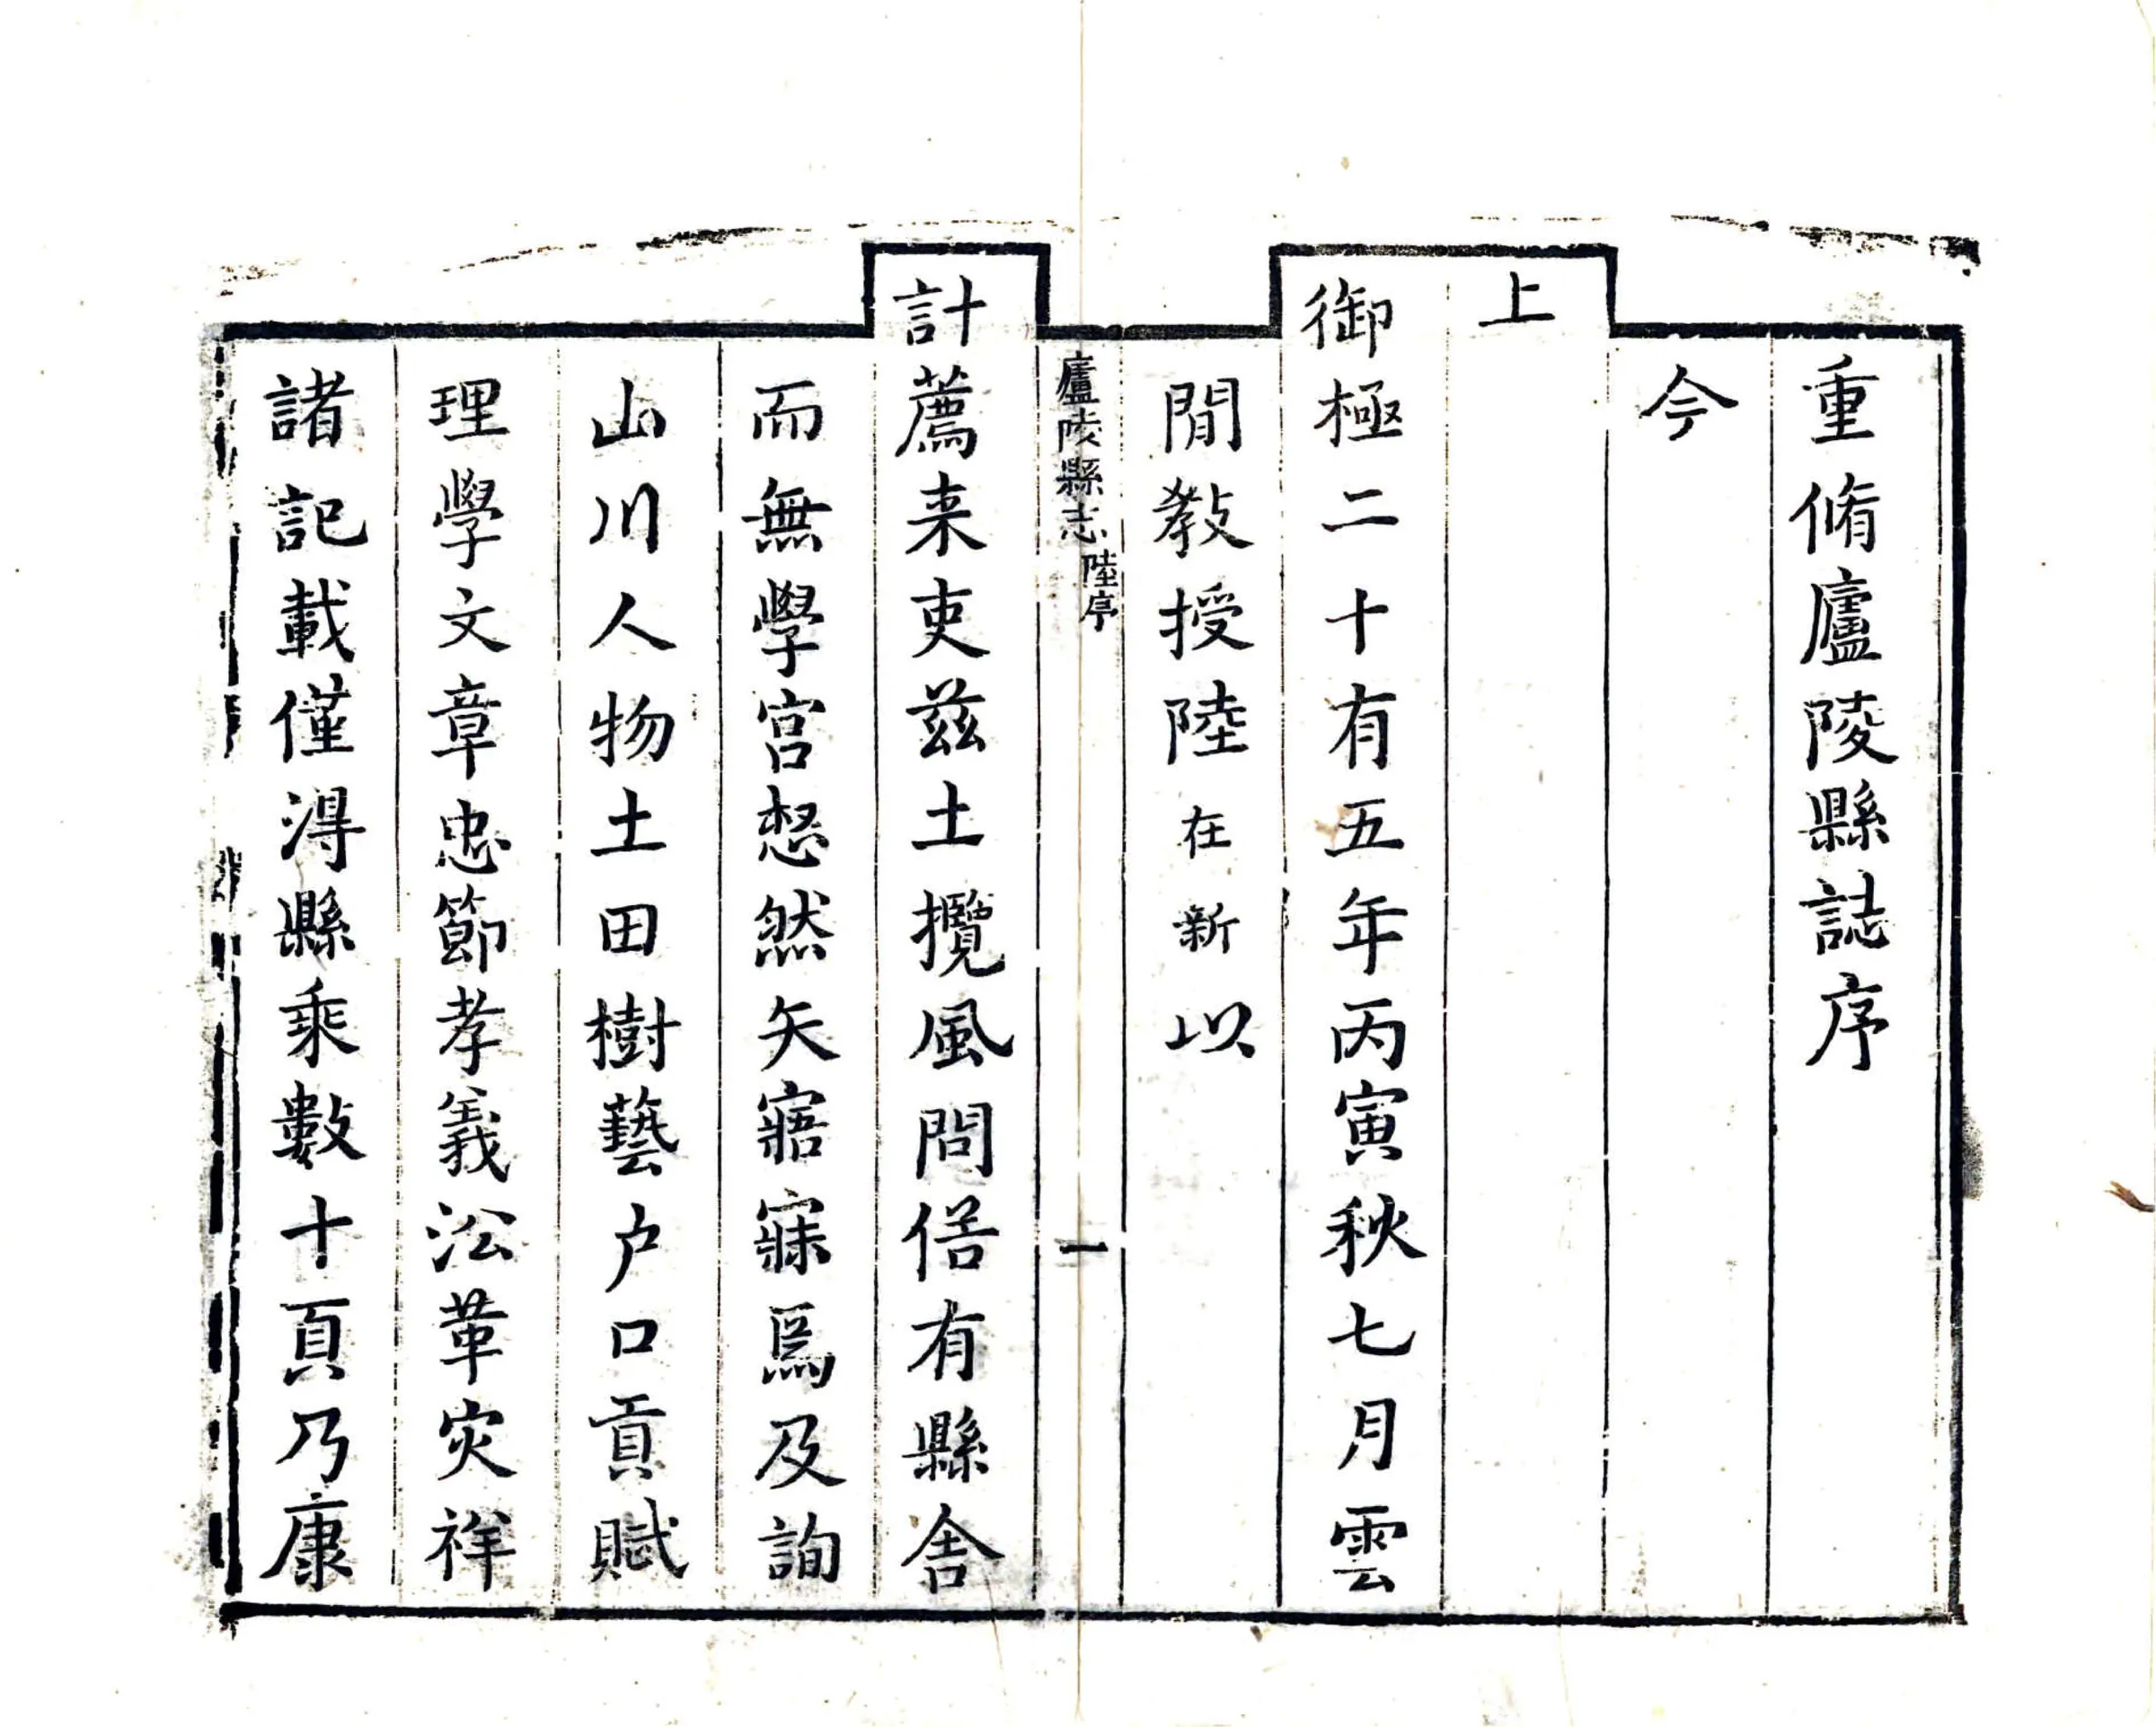 重脩廬陵縣誌序
今
上
御極二十有五年丙寅秋七月雲
閒教授陸在新以
廬陵縣志 陸序 一
計薦来吏兹土攬風問俗有縣舍
而無學宮惄然矢寤寐焉及詢
山川人物土田樹藝户口貢賦
理學文章忠節孝義沿革灾祥
諸記載僅淂縣乘數十頁乃康